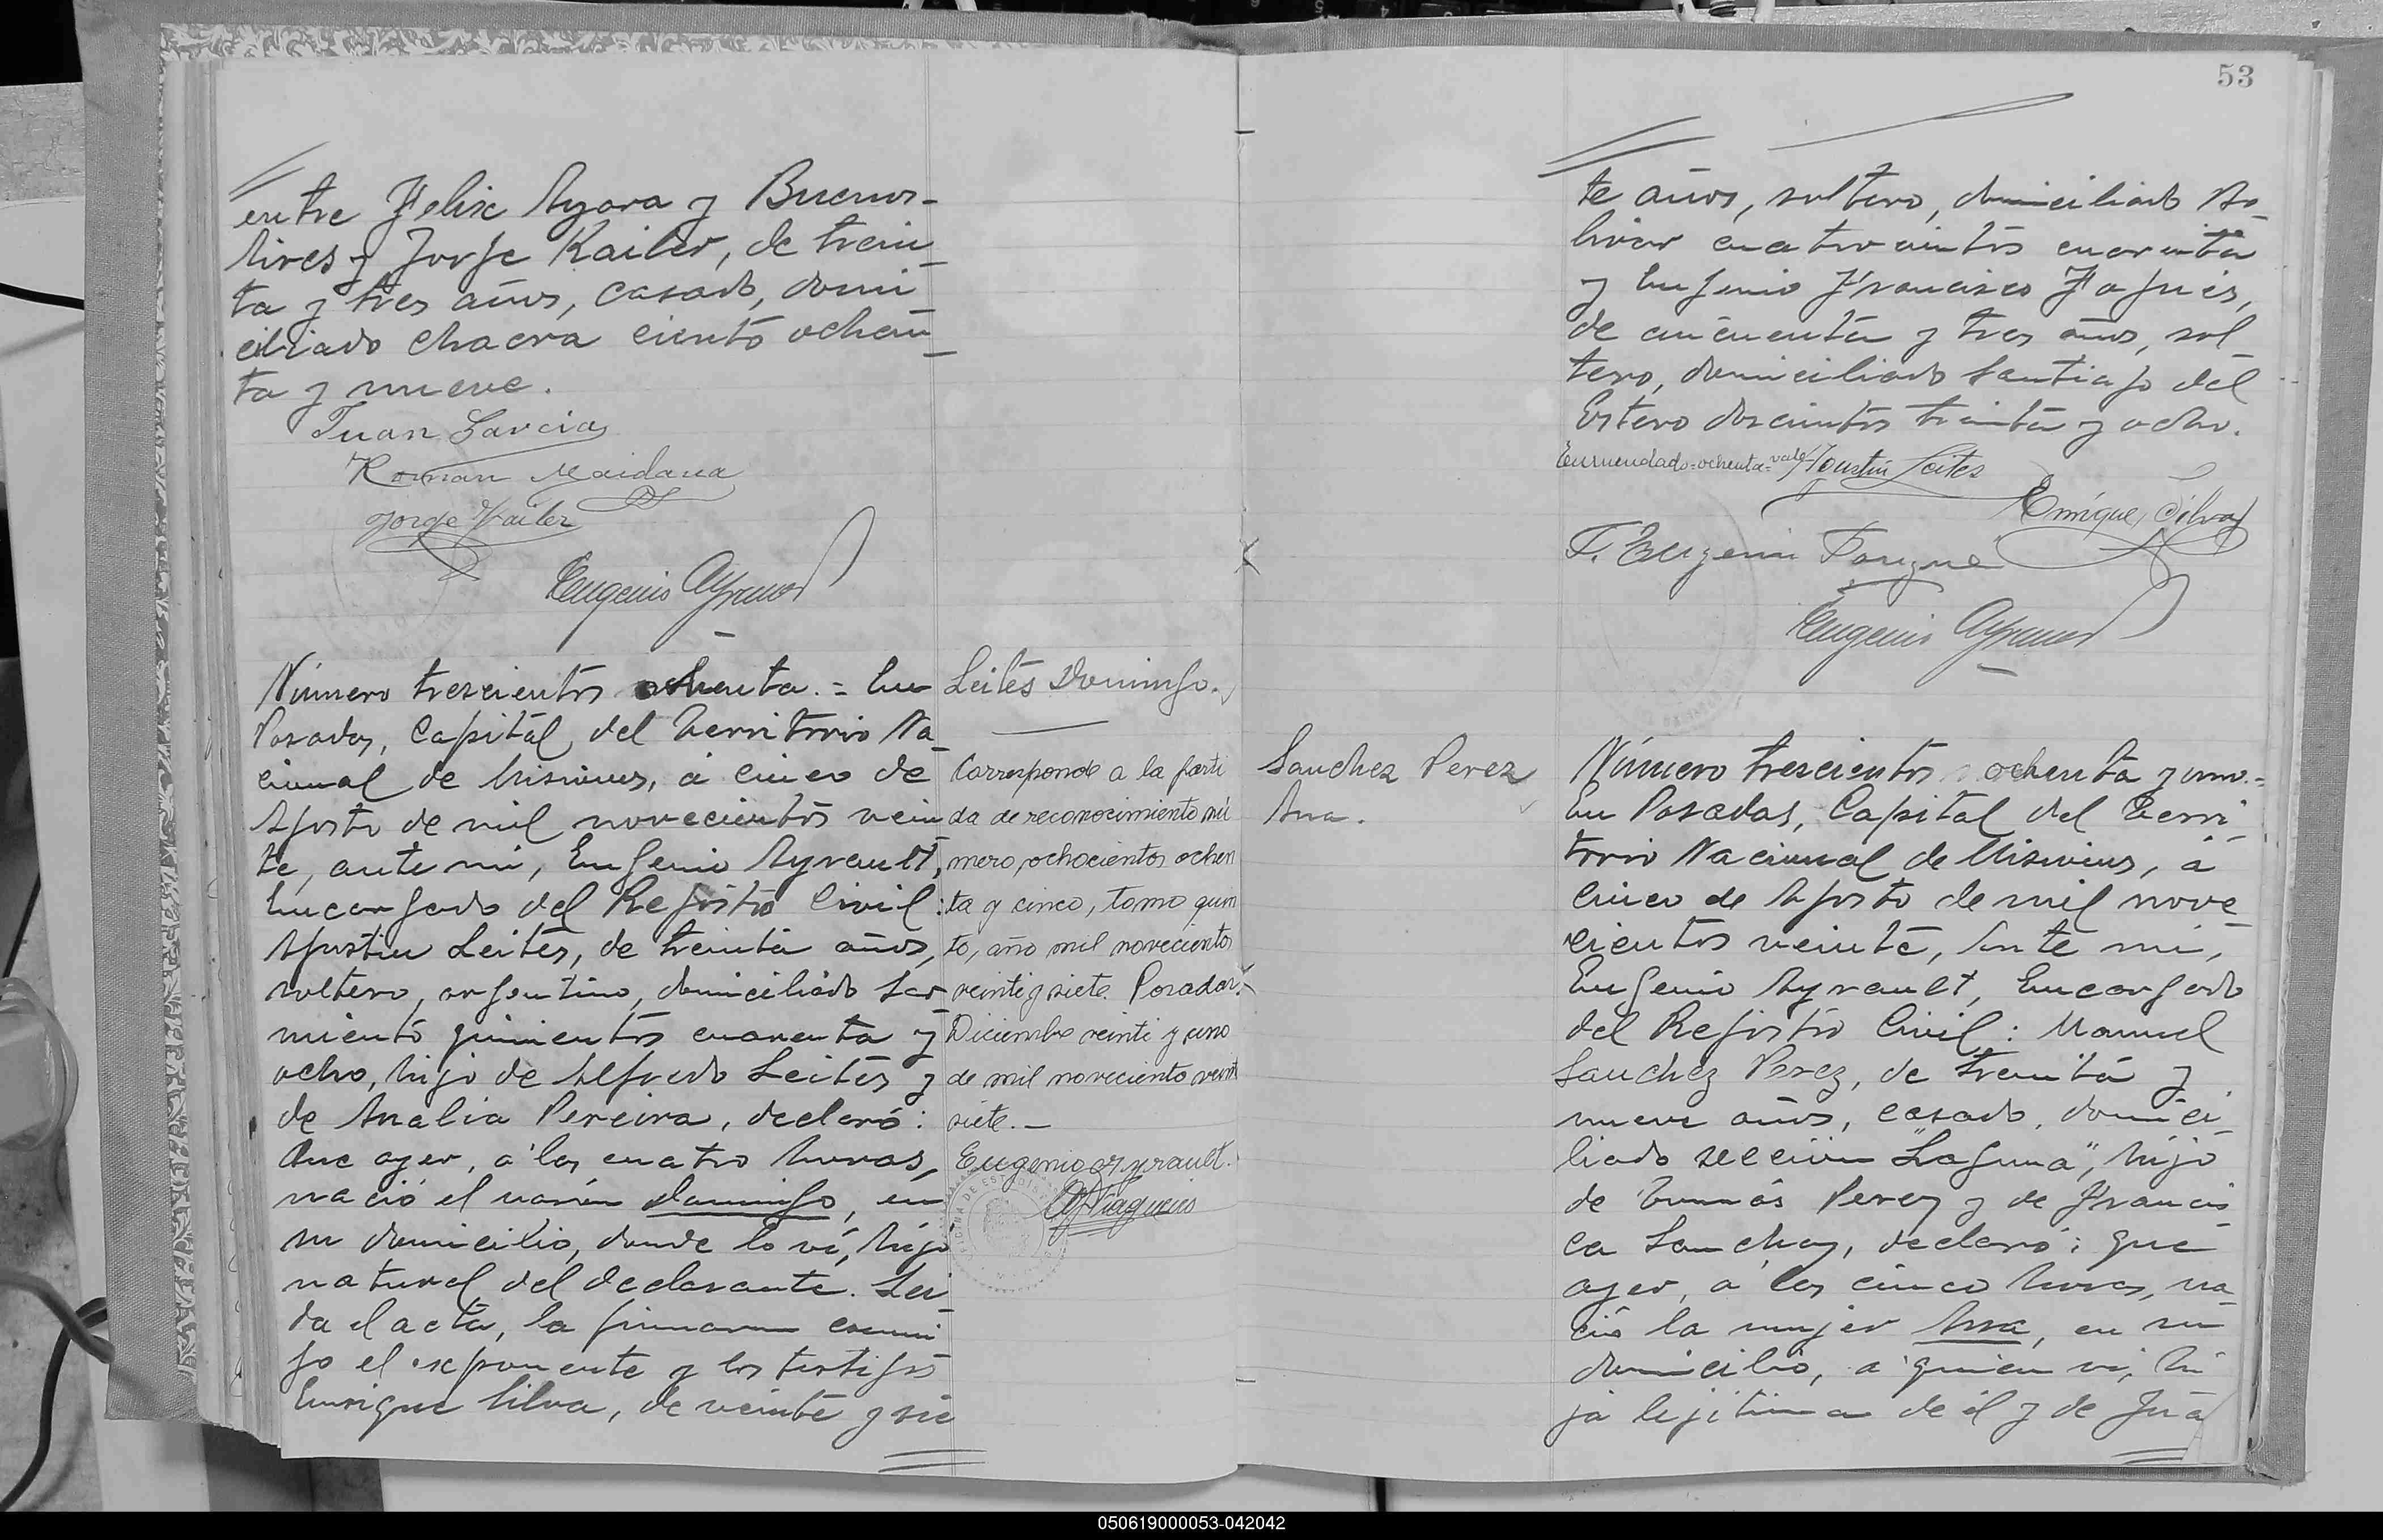 entre Felix Azara y Buenos-
Aires y Jorge Kailer, de trein
ta y tres años, casado, domi
ciliado chacra ciento ochen
ta y nueve.
Juan Garcia
Roman Maidana
Jorge Kailer
Eugenio Ayrault
Número trescientos ochenta.= En
Posadas, Capital del Territorio Na
cional de Misiones, á cinco de
Agosto de mil novecientos vein
te, ante mi, Eugenio Ayrault,
Encargado del Registro Civil:
Agustin Leites, de treinta años,
soltero, argentino, domiciliado Sar
miento quinientos cuarenta y
ocho, hijo de Alfredo Leites y
de Analia Pereira, declaró:
Que ayer, a las cuatro horas,
nació el varón Domingo, en
su domicilio, donde lo ví, hijo
natural del declarante. Lei
da el acta, la firmaron conmi
go el exponente y los testigos
Enrique Silva, de veinte y sie
Leites Domingo.
Corresponde a la parti
da de reconocimiento nú
mero, ochocientos ochen
ta y cinco, tomo quin
to, año mil novecientos
veinti y siete. Posadas.
Diciembre veinti y uno
de mil noveciento veinti
siete.-
Eugenio Ayrault.
53
te años, soltero, domiciliado Bo
livar cuatrocientos cuarenta
y Eugenio Francisco Fagues,
de cincuenta y tres años, sol
tero, domiciliado Santiago del
Estero doscientos treinta y ocho.
Enmendado=ochenta=vale Agustin Leites
Enrique Silva
F. Eugenio
Eugenio Ayrault
Sanchez Perez
Ana.
Número trescientos ochenta y uno.=
En Posadas, Capital del Terri
torio Nacional de Misiones, á
cinco de Agosto de mil nove
cientos veinte, Ante mi,
Eugenio Ayrault, Encargado
del Registro Civil: Manuel
Sanchez Perez, de treinta y
nueve años, casado, domici
liado sección "Laguna", hijo
de Tomás Perez y de Francis
ca Sanchez, declaró: que
ayer, a las cinco horas, na
ció la mujer Ana, en su
domicilio, a quien ví, hi
ja lejitima de él y de Jua
050619000053-042042